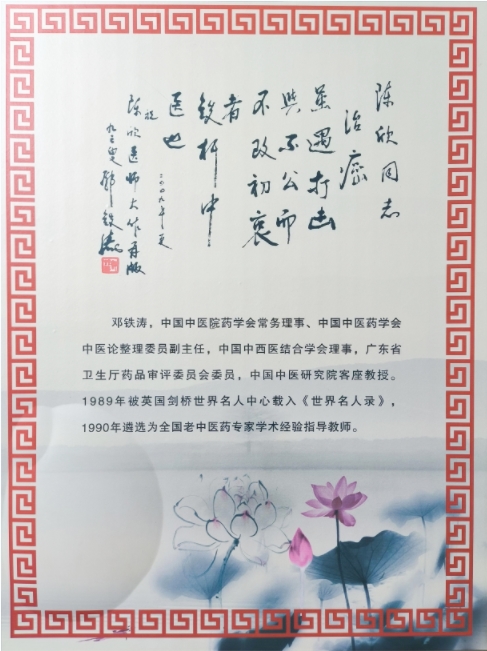 陈欣同志
治癌
虽遇打击
与不公而
不改初衷
者
铁杆中
医也
二〇〇九年夏
祝
陈欣医师大作再版
九三叟邓铁涛
邓铁涛，中国中医院药学会常务理事、中国中医药学会
中医论整理委员副主任，中国中西医结合学会理事，广东省
卫生厅药品审评委员会委员，中国中医研究院客座教授。
1989年被英国剑桥世界名人中心载入《世界名人录》，
1990年遴选为全国老中医药专家学术经验指导教师。